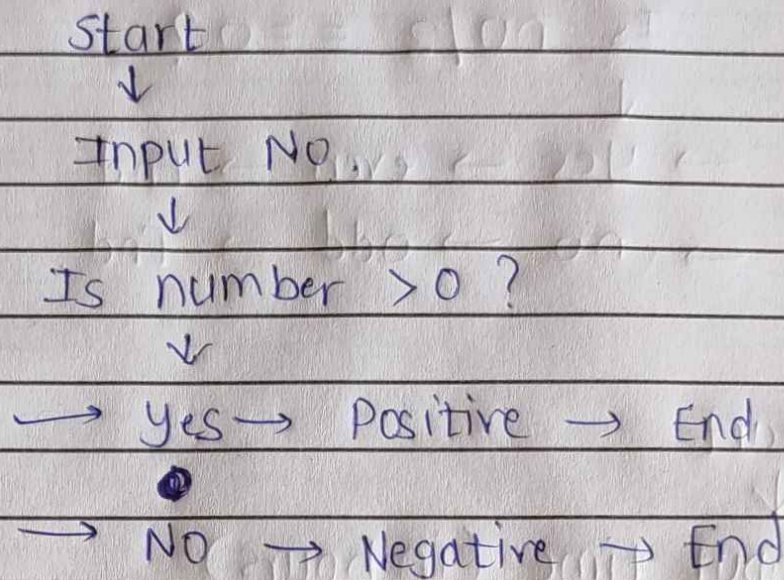 Start
↓
Input No.
↓
Is number >0 ?
↓
→ Yes → Positive → End
→ NO → Negative → End